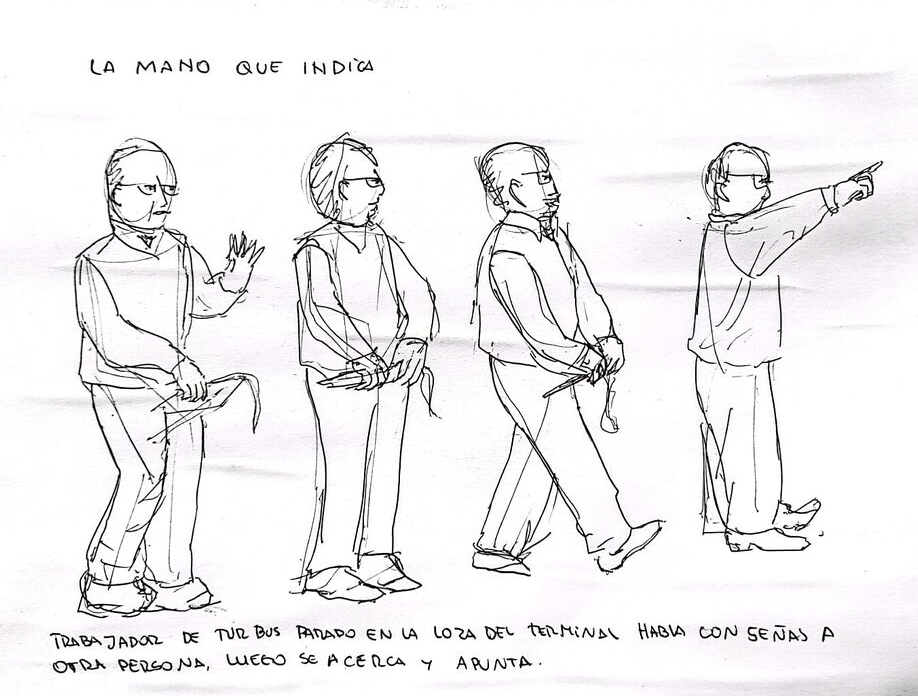 LA MANO QUE INDICA
TRABAJADOR DE TUR BUS PARADO EN LA LOZA DEL TERMINAL HABLA CON SEÑAS A
OTRA PERSONA, LUEGO SE ACERCA Y APUNTA.